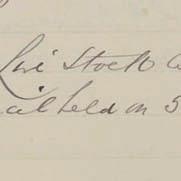 Live Stock
held on 5